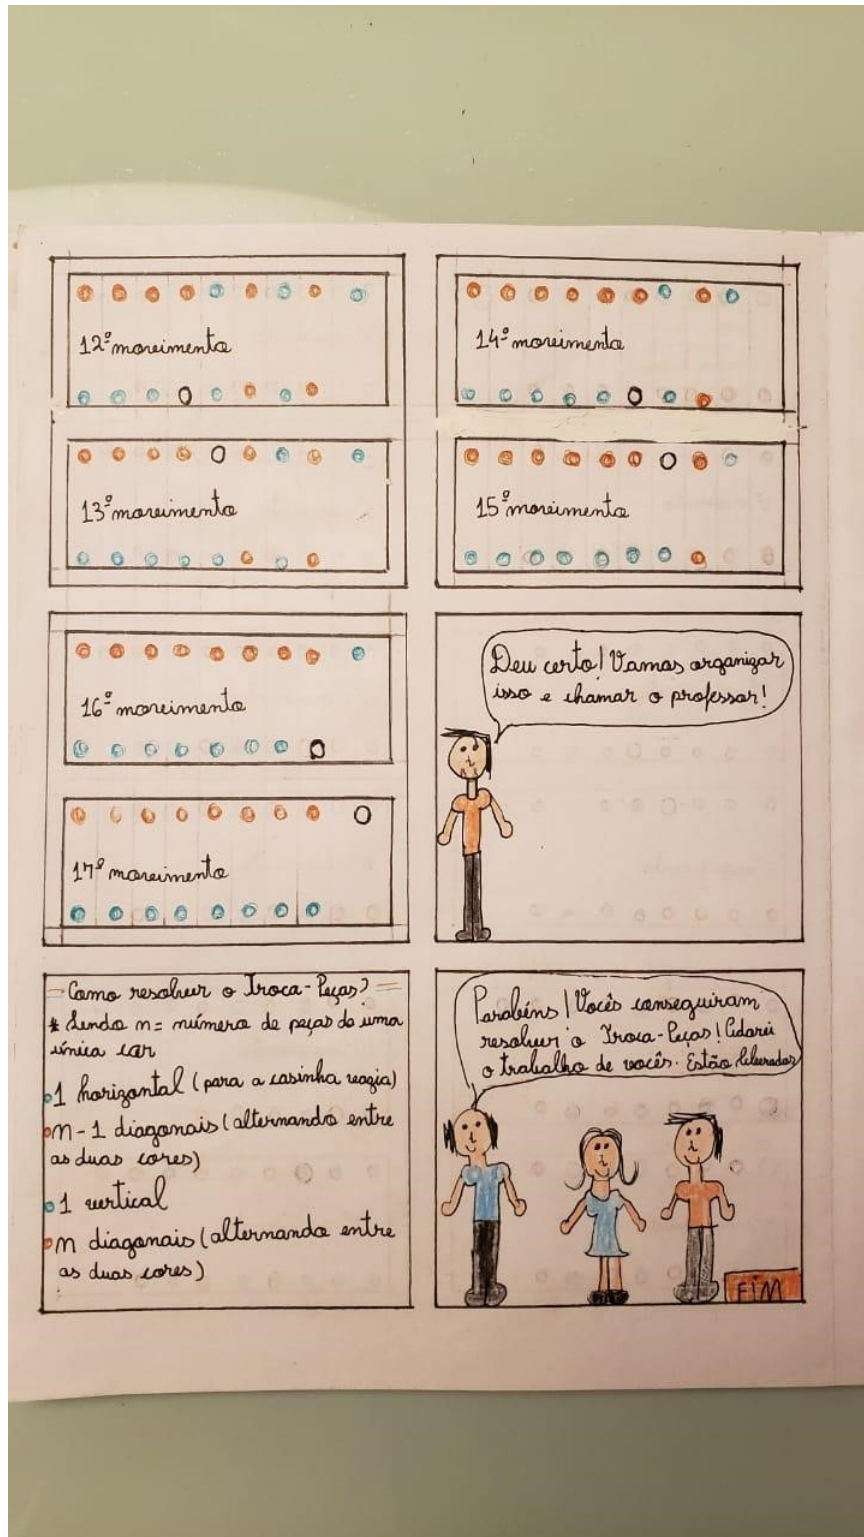 12º movimento
13º movimento
14º movimento
15º movimento
16º movimento
17º movimento
Deu certo! Vamos organizar
isso e chamar o professor!
Como resolver o Troca-Peças?
* Sendo n = número de peças de uma
única cor
1 horizontal (para a casinha vazia)
n-1 diagonais (alternando entre
as duas cores)
1 vertical
n diagonais (alternando entre
as duas cores)
Parabéns! Vocês conseguiram
resolver o Troca-Peças! Adorei
o trabalho de vocês. Estão liberados
FIM